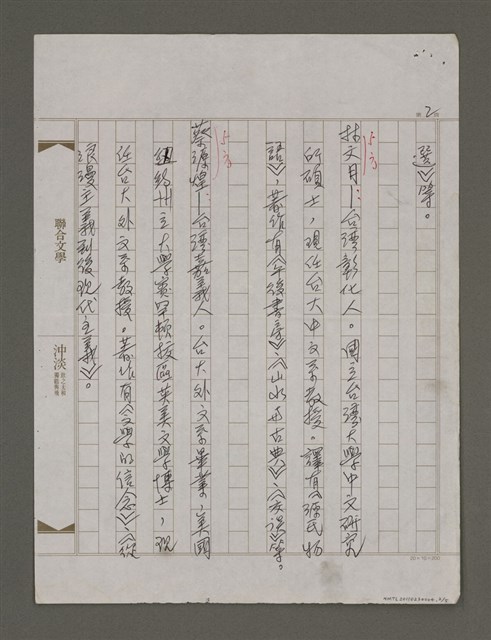 第2頁
選》等。
林文月—台灣彰化人。國立台灣大學中文研究
所碩士，現任台大中文系教授。譯有《源氏物
語》，著作有《午後書房》《山水與古典》《交誤》等。
蔡源煌—台灣嘉義人。台大外文系畢業，美國
紐約州立大學賓罕頓校區英美文學博士，現
任台大外文系教授。著作有《文學的信念》《從
浪漫主義到後現代主義》。
聯合文學